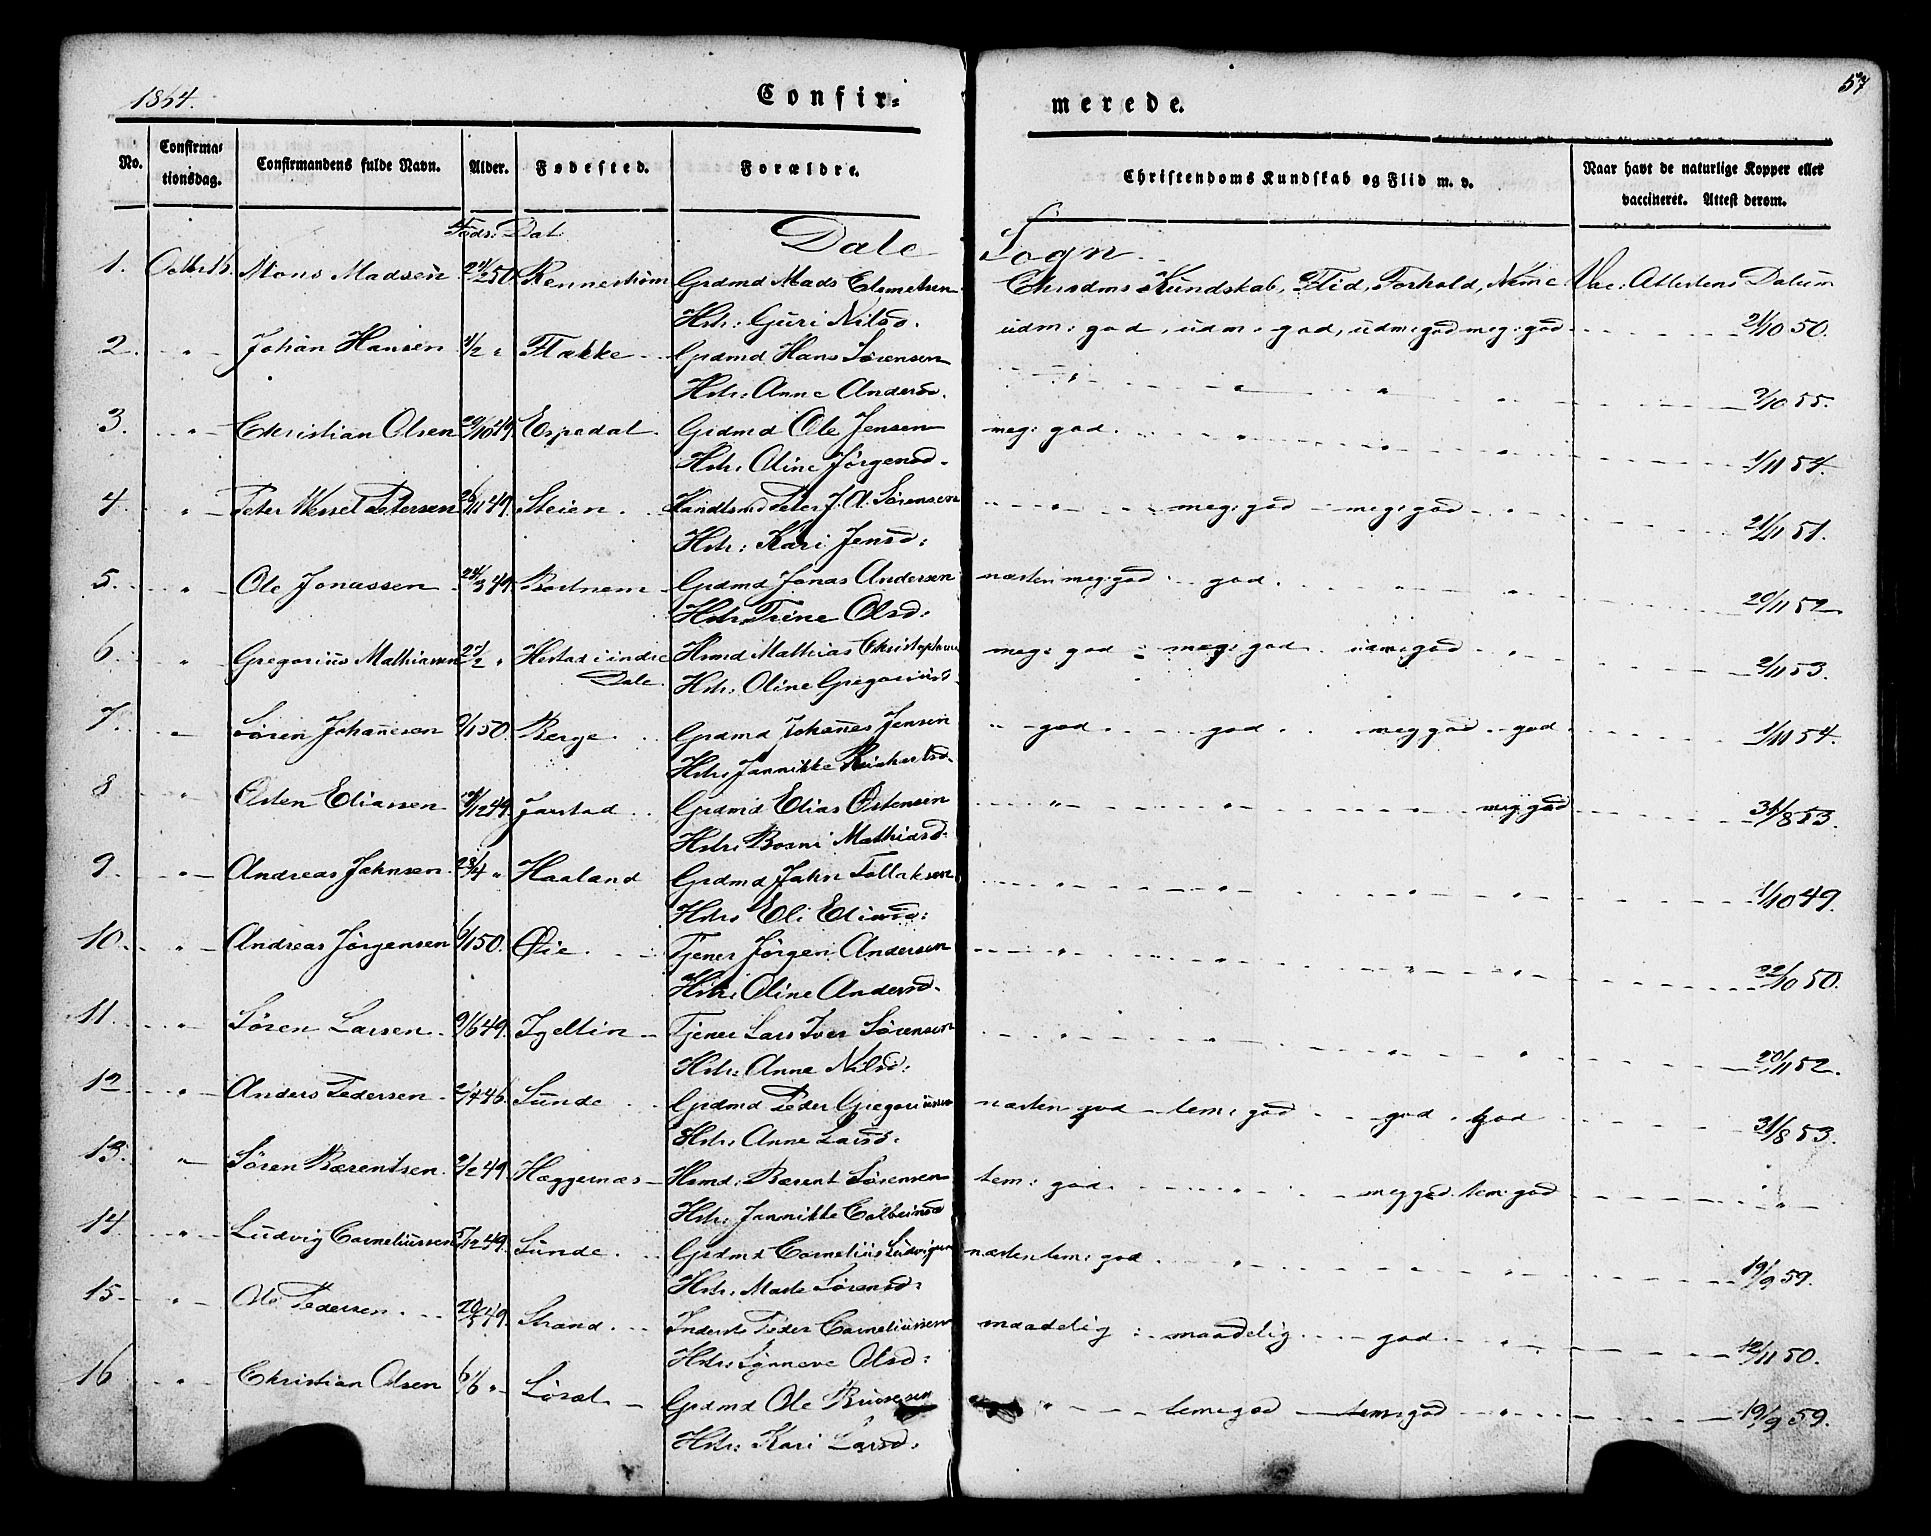 1864.
Confir=
merede.
57
No.
Confirma-
tionsdag.
Confirmandens fulde Navn.
Alder.
Fødested.
Forældre.
Christendoms Kundskab og Flid m. v.
Naar havt de naturlige Kopper eller
vaccineret. Attest derom.
Føds: Dat
Dale Sogn
1. Octbr 16. Mons Madsen 50 Rennestrøm Grdmd Mads Clemetsen Chrsdms Kundskab, Flid, Forhold, Neme Vac. Attestens Datum
Hstr: Guri Nilsd. udm: god, udm: god, udm: god meg: god 21/10 50.
2. " Johan Hansen 1/2 " Flekke Grdmd Hans Sørensen " " " "
Hstr: Anne Andersd. 2/10 55.
3. " Christian Olsen 29/10 49. Espedal Grdmd Ole Jensen meg: god. " " "
Hstr: Oline Jørgensd. 1/11 54.
4 " Peter Wessel Petersen 26/11 49. Steien Handlsmd Peter J. A. Sørensen " meg: god meg: god "
Hstr: Kari Jensd: 21/11 51.
5. " Ole Jonassen 24/3 49. Bortnem Grdmd Jonas Andersen næsten meg: god god. " "
Hstr: Trine Olsd: 20/11 52
6 " Gregorius Mathiassen 27/2 " Hestad i indre Hsmd Mathias Christophersen meg: god meg: god udm: god "
Dale Hstr: Oline Gregoriusd 2/11 53.
7. " Søren Johannesen 9/1 50. Berge Grdmd Johannes Jensen " god god meg god god
Hstr: Jannikke Reichertsd. 1/11 54.
8 " Østen Eliassen 12 49. Jarstad Grdmd Elias Østensen " " " meg god
Hstr: Bosni Mathiasd. 31/8 53.
9. " Andreas Johnsen 28/4 " Haaland Grdmd John Tollaksen " " " "
Hstr: Eli Eliasd: 1/10 49.
10. " Andreas Jørgensen 6/1 50. Øie Tjener Jørgen Andersen " " " "
Hstr: Oline Andersd. 22/10 50.
11. " Søren Larsen 9/6 49. Igeltin Tjener Lars Iver Sørensen " " " "
Hstr: Anne Nilsd: 20/11 52.
12 " Anders Pedersen 2/4 46. Sunde Grdmd Peder Gregoriussen næsten god tem: god god god
Hstr: Anne Larsd: 31/8 53.
13. " Søren Bærentsen 2/2 49. Heggernæs Hsmd: Bærent Sørensen tem: god " meg god tem: god
Hstr: Jannikke Colbeinsd "
14. " Ludvig Corneliussen 5/12 49. Sunde Grdmd Cornelius Ludvigsen næsten tem: god " " "
Hstr: Marte Sørensd: 19/9 59.
15. " Ole Pedersen 49. Strand Inderste Peder Corneliussen maadelig maadelig god "
Hstr: Synneve Olsd: 12/11 50.
16 " Christian Olsen 6/6 " Løset Grdmd Ole " tem: god tem: god "
Hstr: Kari Larsd: 19/9 59.